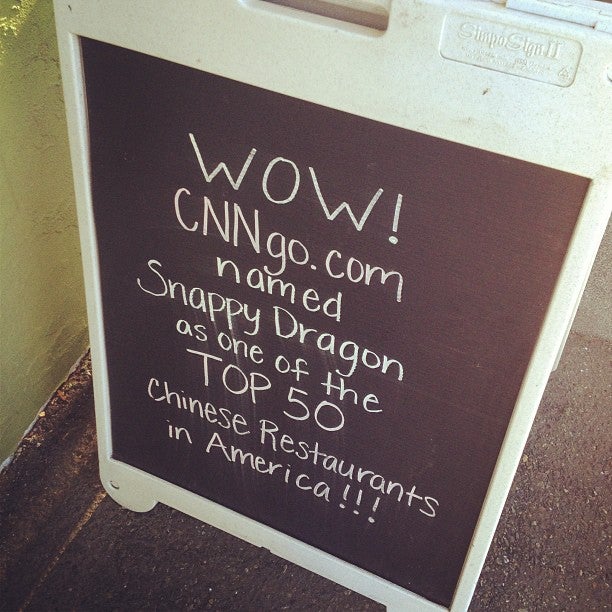 SimpoSign II
WOW!
CNNgo.com
named
Snappy Dragon
as one of the
TOP 50
Chinese Restaurants
in America!!!